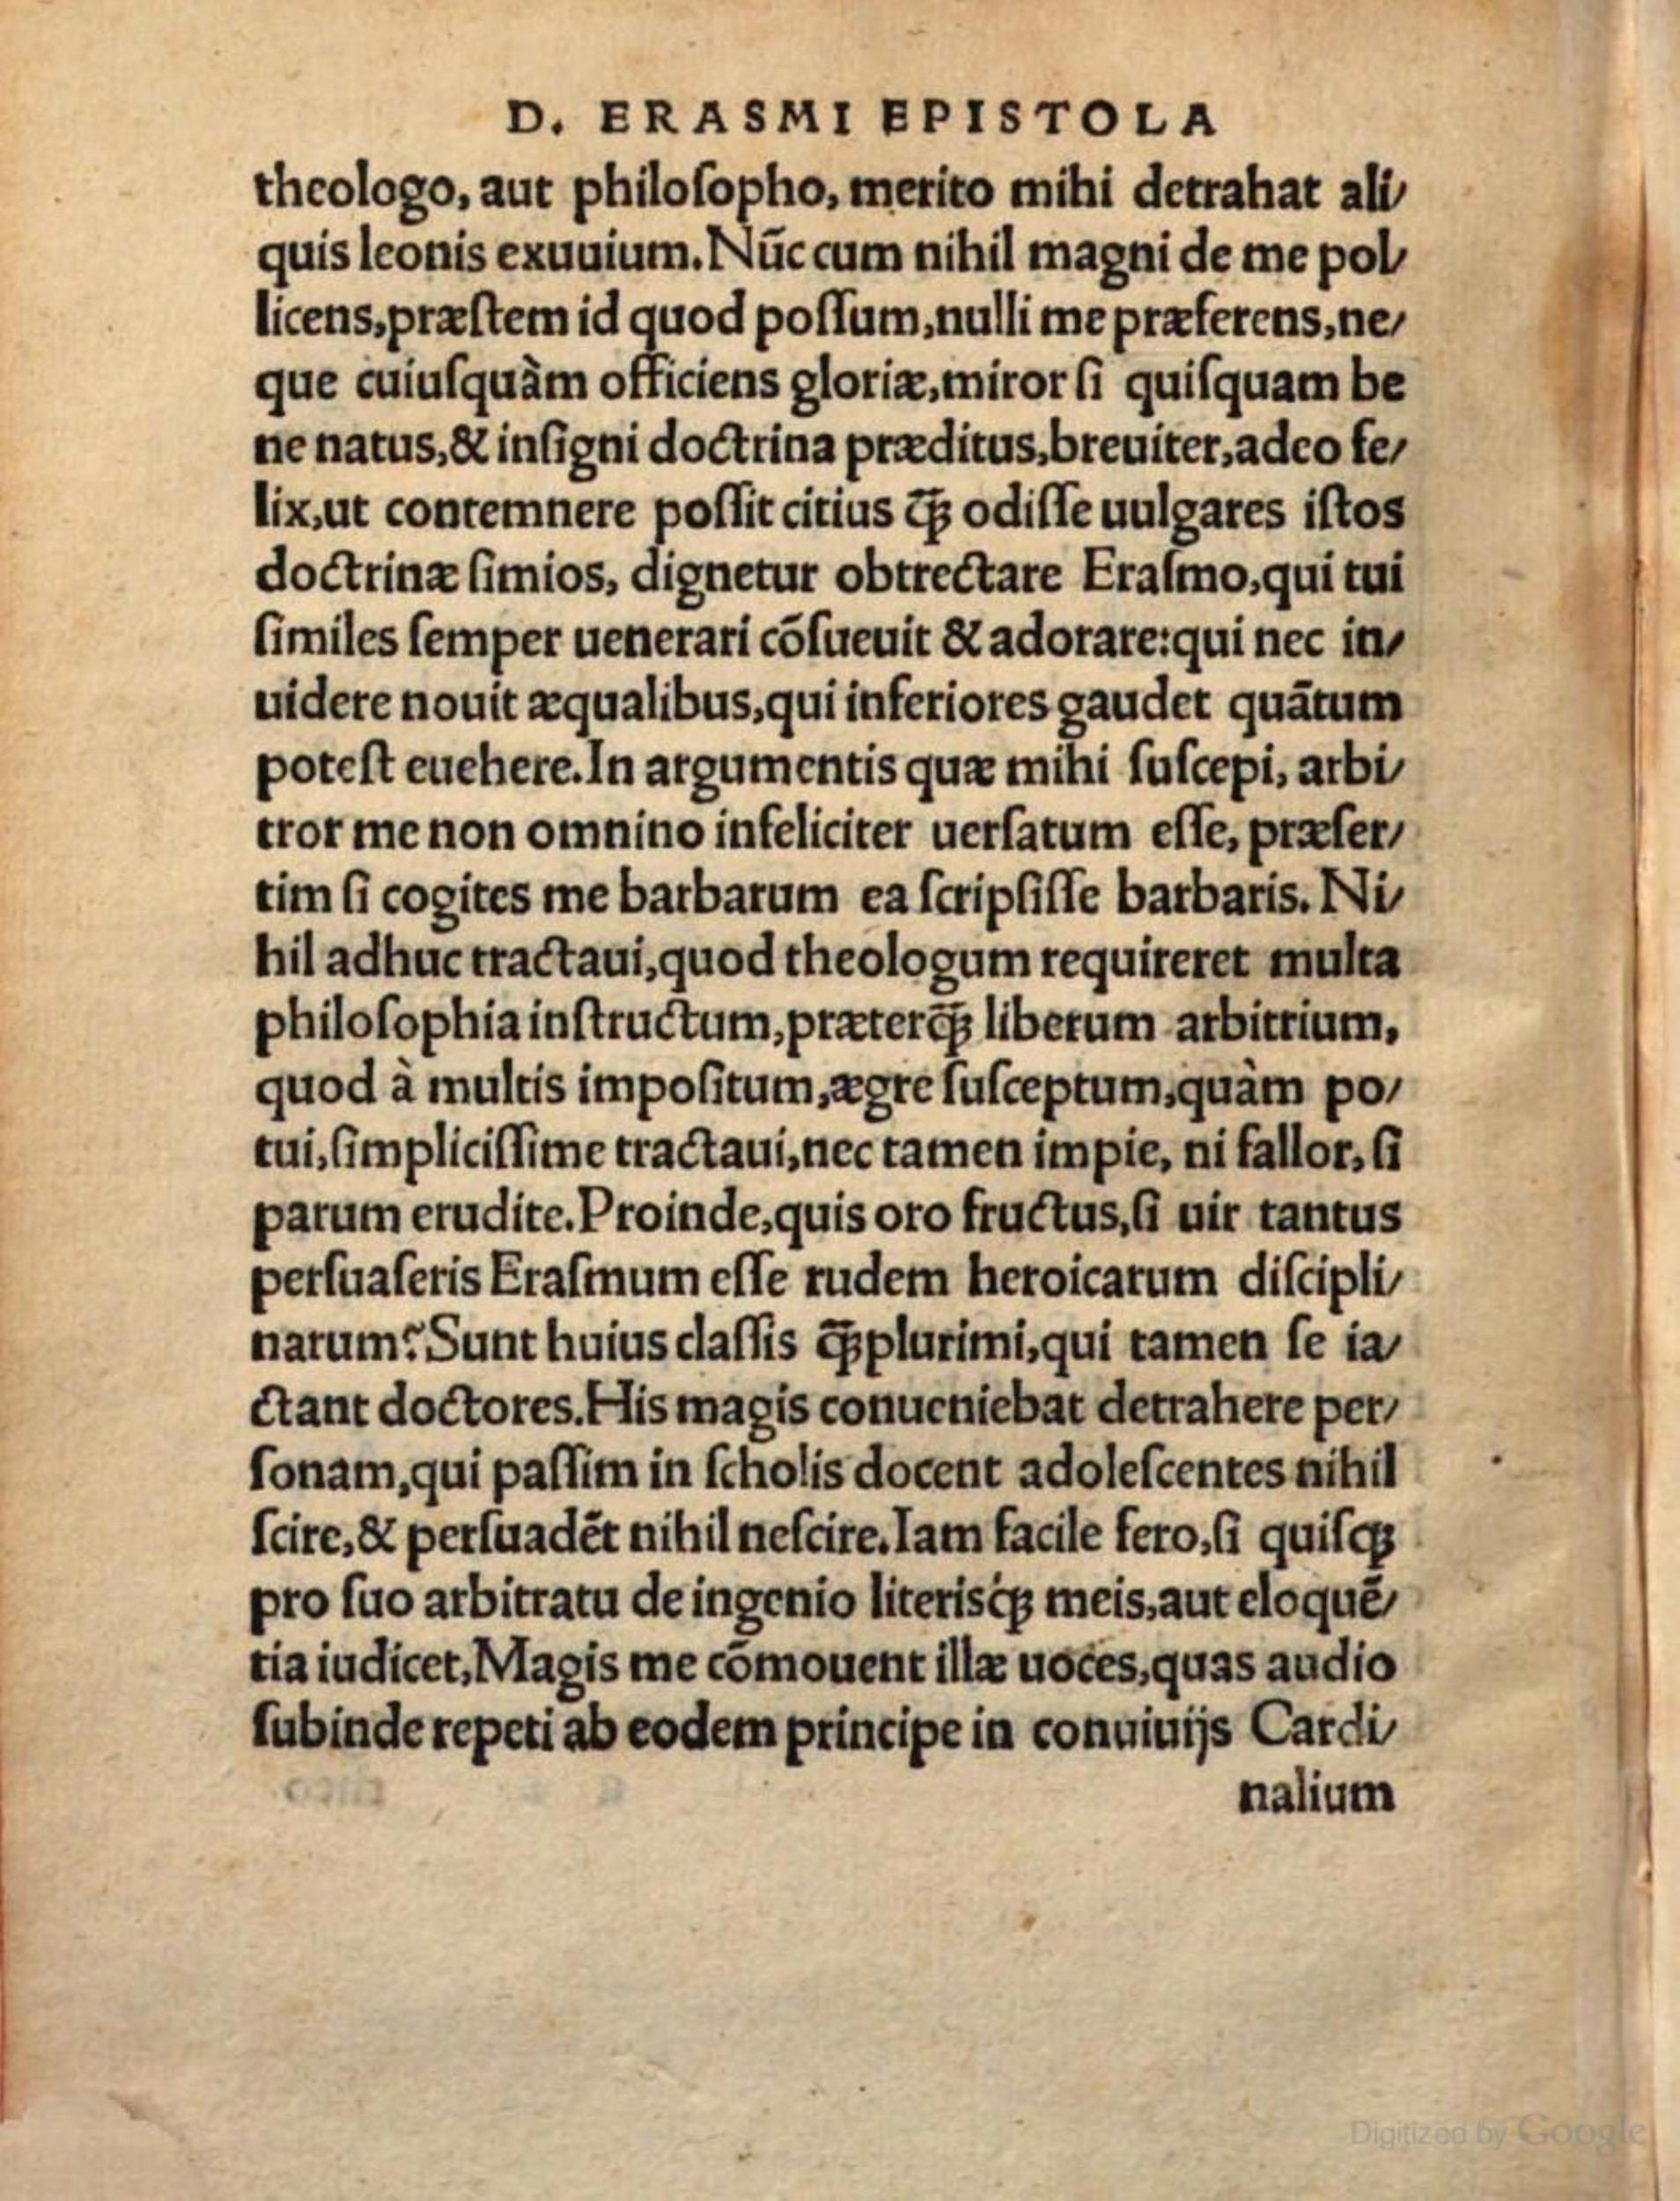 D. ERASMI EPISTOLA
theologo, aut philoſopho, merito mihi detrahat ali⸗
quis leonis exuuium. Nũc cum nihil magni de me pol⸗
licens, præſtem id quod poſſum, nulli me præferens, ne⸗
que cuiuſquàm officiens gloriæ, miror ſi quiſquam be
ne natus, & inſigni doctrina præditus, breuiter, adeo fe⸗
lix, ut contemnere poſſit citius q̃ꝫ odiſſe uulgares iſtos
doctrinæ ſimios, dignetur obtrectare Eraſmo, qui tui
ſimiles ſemper uenerari cõſueuit & adorare: qui nec in⸗
uidere nouit æqualibus, qui inferiores gaudet quãtum
poteſt euehere. In argumentis quæ mihi ſuſcepi, arbi⸗
tror me non omnino infeliciter uerſatum eſſe, præſer⸗
tim ſi cogites me barbarum ea ſcripſiſſe barbaris. Ni⸗
hil adhuc tractaui, quod theologum requireret multa
philoſophia inſtructum, præterq̃ꝫ liberum arbitrium,
quod à multis impoſitum, ægre ſuſceptum, quàm po⸗
tui, ſimpliciſſime tractaui, nec tamen impie, ni fallor, ſi
parum erudite. Proinde, quis oro fructus, ſi uir tantus
perſuaſeris Eraſmum eſſe rudem heroicarum diſcipli⸗
narum? Sunt huius claſſis q̃ꝫplurimi, qui tamen ſe ia⸗
ctant doctores. His magis conueniebat detrahere per⸗
ſonam, qui paſſim in ſcholis docent adoleſcentes nihil
ſcire, & perſuadẽt nihil neſcire. Iam facile fero, ſi quiſqꝫ
pro ſuo arbitratu de ingenio literisq́ꝫ meis, aut eloquẽ⸗
tia iudicet, Magis me cõmouent illæ uoces, quas audio
ſubinde repeti ab eodem principe in conuiuijs Cardi⸗
nalium
Digitized by Google